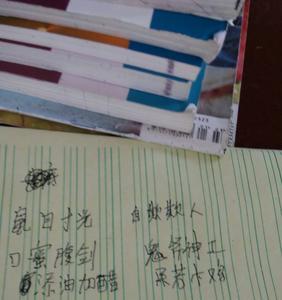 鼠目寸光
自欺欺人
口蜜腹剑
鬼斧神工
添油加醋
呆若木鸡